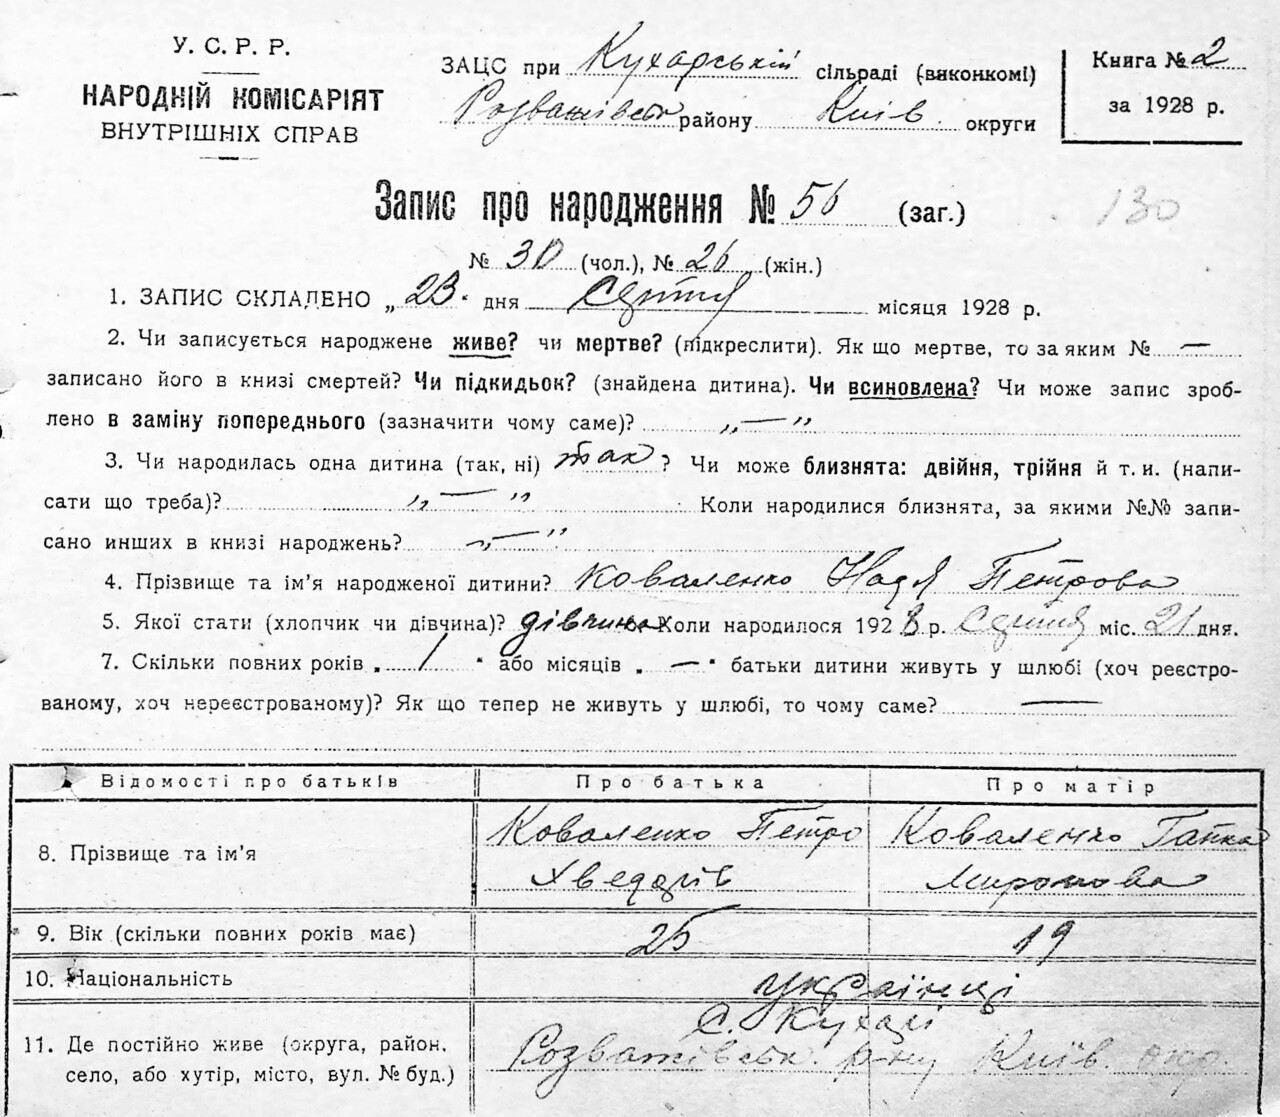 У. С. Р. Р.
НАРОДНІЙ КОМІСАРІЯТ
ВНУТРІШНІХ СПРАВ
ЗАЦС при Кухарській сільраді (виконкомі)
Розважівськ району Київ. округи
Книга № 2
за 1928 р.
Запис про народження № 56 (заг.)
130
№ 30 (чол.), № 26 (жін.)
1. ЗАПИС СКЛАДЕНО „23" дня місяця 1928 р.
2. Чи записується народжене живе? чи мертве? (підкреслити). Як що мертве, то за яким № —
записано його в книзі смертей? Чи підкидьок? (знайдена дитина). Чи всиновлена? Чи може запис зроб-
лено в заміну попереднього (зазначити чому саме)? „—"
3. Чи народилась одна дитина (так, ні) так ? Чи може близнята: двійня, трійня й т. и. (напи-
сати що треба)? „—" Коли народилися близнята, за якими №№ запи-
сано инших в книзі народжень? „—"
4. Прізвище та ім'я народженої дитини? Коваленко Надя Петрова
5. Якої стати (хлопчик чи дівчина)? дівчина Коли народилося 1928 р. міс. 21 дня.
7. Скільки повних років „ 1 " або місяців „ — " батьки дитини живуть у шлюбі (хоч реєстро-
ваному, хоч нереєстрованому)? Як що тепер не живуть у шлюбі, то чому саме? —
Відомості про батьків Про батька Про матір
8. Прізвище та ім'я Коваленко Петро Хведорів Коваленко Гапка Миронова
9. Вік (скільки повних років має) 25 19
10. Національність українці
11. Де постійно живе (округа, район, село, або хутір, місто, вул. № буд.) с. Кухарі Розважівськ. р-ну Київ. окр.